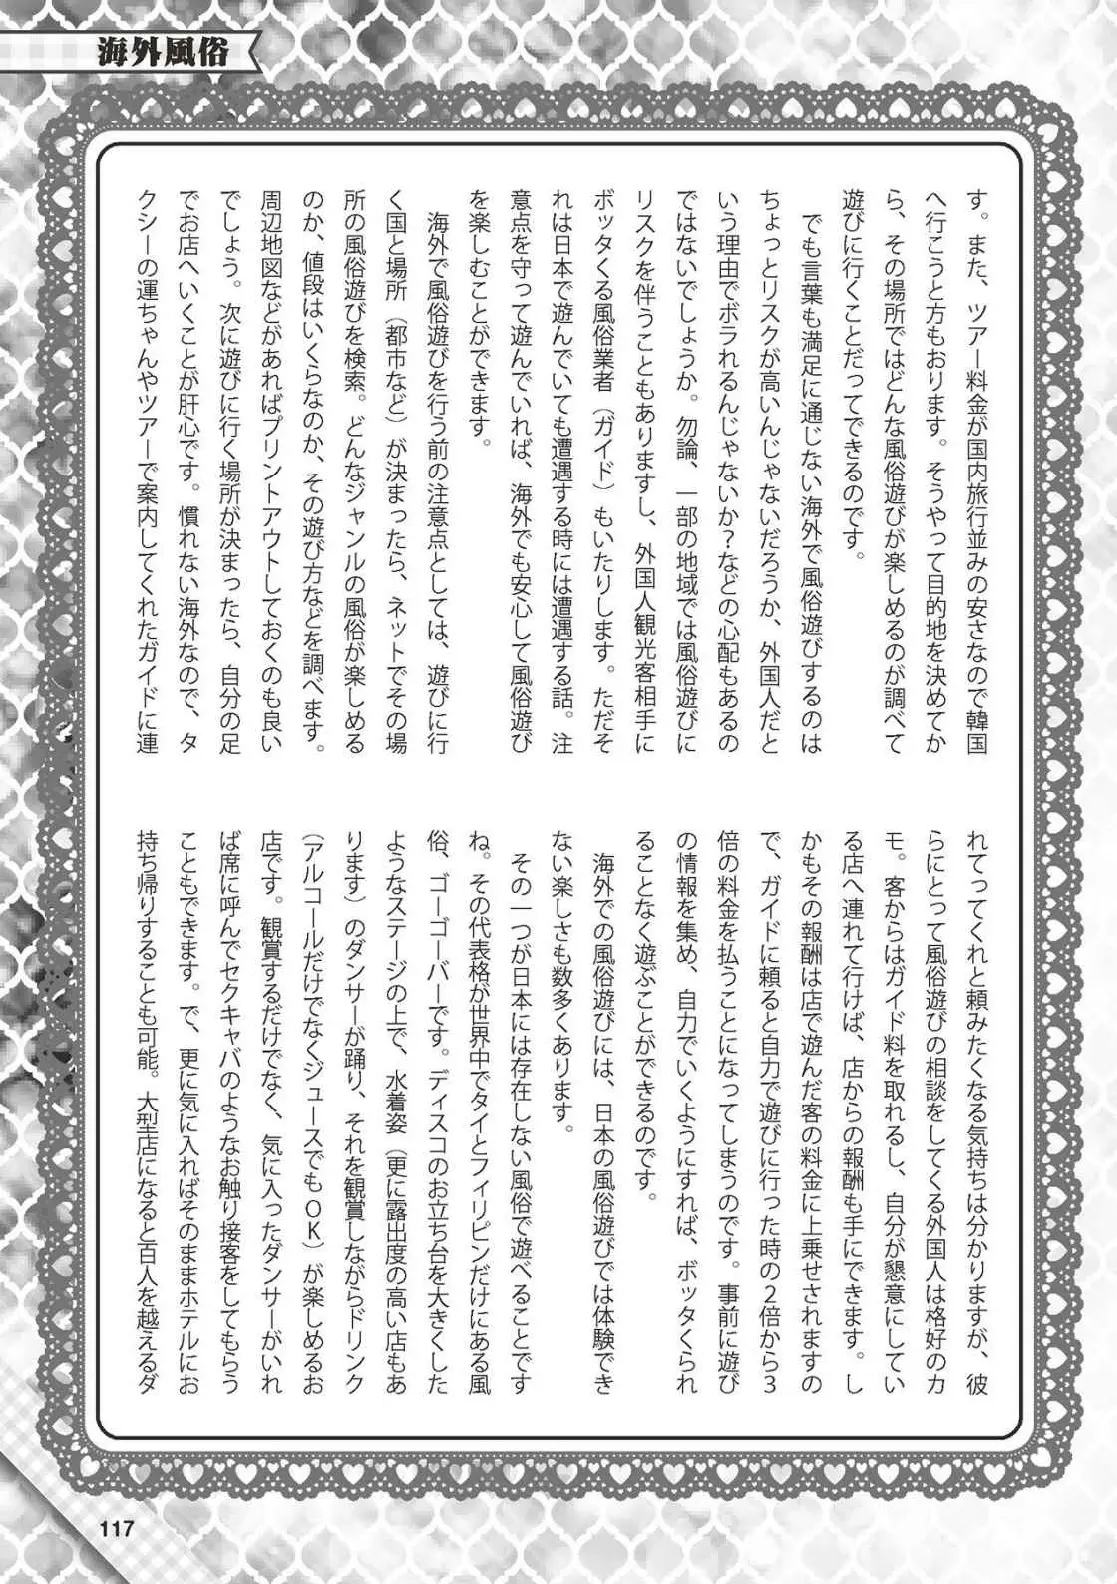 海外風俗
す。また、ツアー料金が国内旅行並みの安さなので韓国
へ行こうと方もおります。そうやって目的地を決めてか
ら、その場所ではどんな風俗遊びが楽しめるのが調べて
遊びに行くことだってできるのです。
でも言葉も満足に通じない海外で風俗遊びするのは
ちょっとリスクが高いんじゃないだろうか、外国人だと
いう理由でボラれるんじゃないか？などの心配もあるの
ではないでしょうか。勿論、一部の地域では風俗遊びに
リスクを伴うこともありますし、外国人観光客相手に
ボッタくる風俗業者（ガイド）もいたりします。ただそ
れは日本で遊んでいても遭遇する時には遭遇する話。注
意点を守って遊んでいれば、海外でも安心して風俗遊び
を楽しむことができます。
海外で風俗遊びを行う前の注意点としては、遊びに行
く国と場所（都市など）が決まったら、ネットでその場
所の風俗遊びを検索。どんなジャンルの風俗が楽しめる
のか、値段はいくらなのか、その遊び方などを調べます。
周辺地図などがあればプリントアウトしておくのも良い
でしょう。次に遊びに行く場所が決まったら、自分の足
でお店へいくことが肝心です。慣れない海外なので、タ
クシーの運ちゃんやツアーで案内してくれたガイドに連
れてってくれと頼みたくなる気持ちは分かりますが、彼
らにとって風俗遊びの相談をしてくる外国人は格好のカ
モ。客からはガイド料を取れるし、自分が懇意にしてい
る店へ連れて行けば、店からの報酬も手にできます。し
かもその報酬は店で遊んだ客の料金に上乗せされますの
で、ガイドに頼ると自力で遊びに行った時の２倍から３
倍の料金を払うことになってしまうのです。事前に遊び
の情報を集め、自力でいくようにすれば、ボッタくられ
ることなく遊ぶことができるのです。
海外での風俗遊びには、日本の風俗遊びでは体験でき
ない楽しさも数多くあります。
その一つが日本には存在しない風俗で遊べることです
ね。その代表格が世界中でタイとフィリピンだけにある風
俗、ゴーゴーバーです。ディスコのお立ち台を大きくした
ようなステージの上で、水着姿（更に露出度の高い店もあ
ります）のダンサーが踊り、それを観賞しながらドリンク
（アルコールだけでなくジュースでもOK）が楽しめるお
店です。観賞するだけでなく、気に入ったダンサーがいれ
ば席に呼んでセクキャバのようなお触り接客をしてもらう
こともできます。で、更に気に入ればそのままホテルにお
持ち帰りすることも可能。大型店になると百人を越えるダ
117